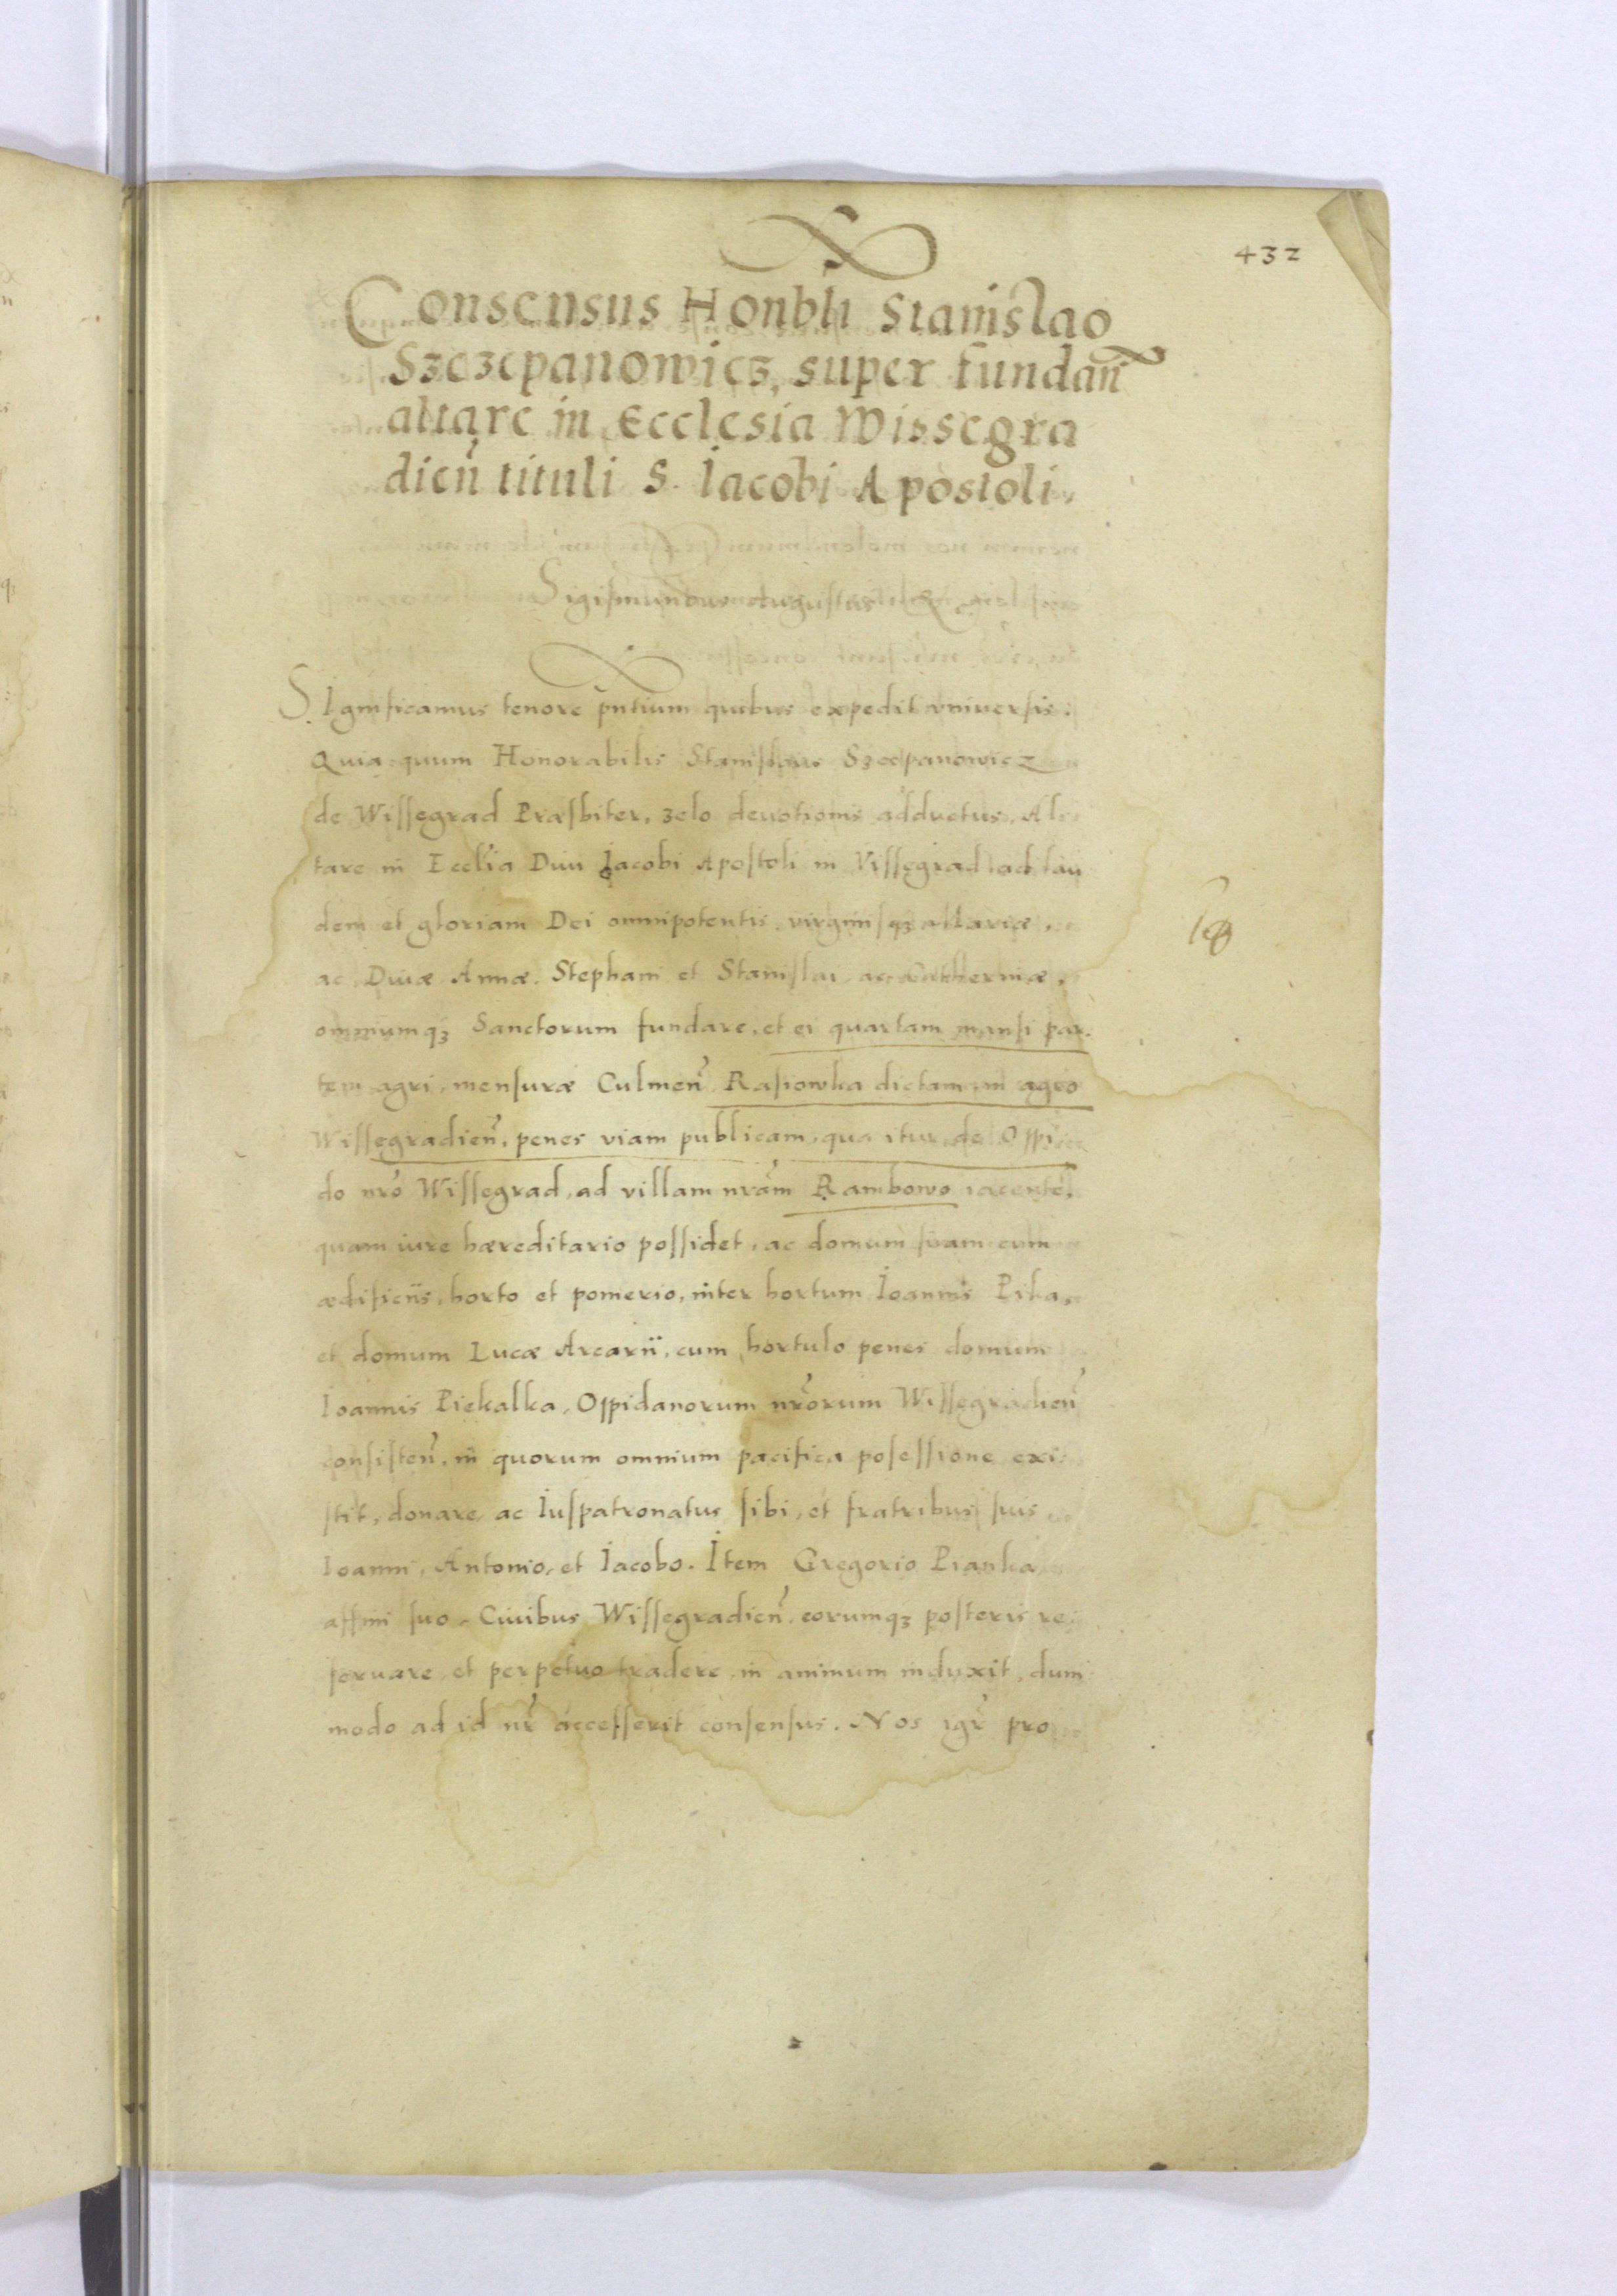 432
Consensus Honbli Stanislao
Szczepanowicz, super fundan̄
altare in Ecclesia Wissegra
dien̄ tituli S. Iacobi Apostoli,
Sigismundus Augustus &c.
SIgnificamus tenore p̄ntium quibus expedit vniuersis:
Quia quum Honorabilis Stanislaus Szcepanowicz
de Wissegrad Præsbiter, zelo deuotionis adductus, Al
tare in Ecclīa Diui Iacobi Apostoli in Vissegrad ad lau
dem et gloriam Dei omnipotentis, virginisqꝫ Mariæ,
ac Diuæ Annæ. Stephani et Stanislai, ac Catherinæ,
omniumqꝫ Sanctorum fundare, et ei quartam mansi par.
tem agri, mensuræ Culmen̄ Rasiowka dictam, in agro
Wissegradien̄, penes viam publicam, qua itur de Oppi
do nr̄o Wissegrad, ad villam nrām Rambowo iacentē,
quam iure hæreditario possidet, ac domum suam cum
ædificiis, horto et pomerio, inter hortum Ioannis Pika,
et domum Lucæ Arcarii, cum hortulo penes domum
Ioannis Piekalka, Oppidanorum nr̄orum Wissegradien̄
consisten̄, in quorum omnium pacifica posessione exi
stit, donare, ac Iuspatronatus sibi, et fratribus suis
Ioanni, Antonio, et Iacobo. Item Gregorio Pianka
affini suo, Ciuibus Wissegradien̄, eorumqꝫ posteris re
seruare, et perpetuo tradere, in animum induxit, dum
modo ad id nr̄ accesserit consensus. Nos igr̄ pro